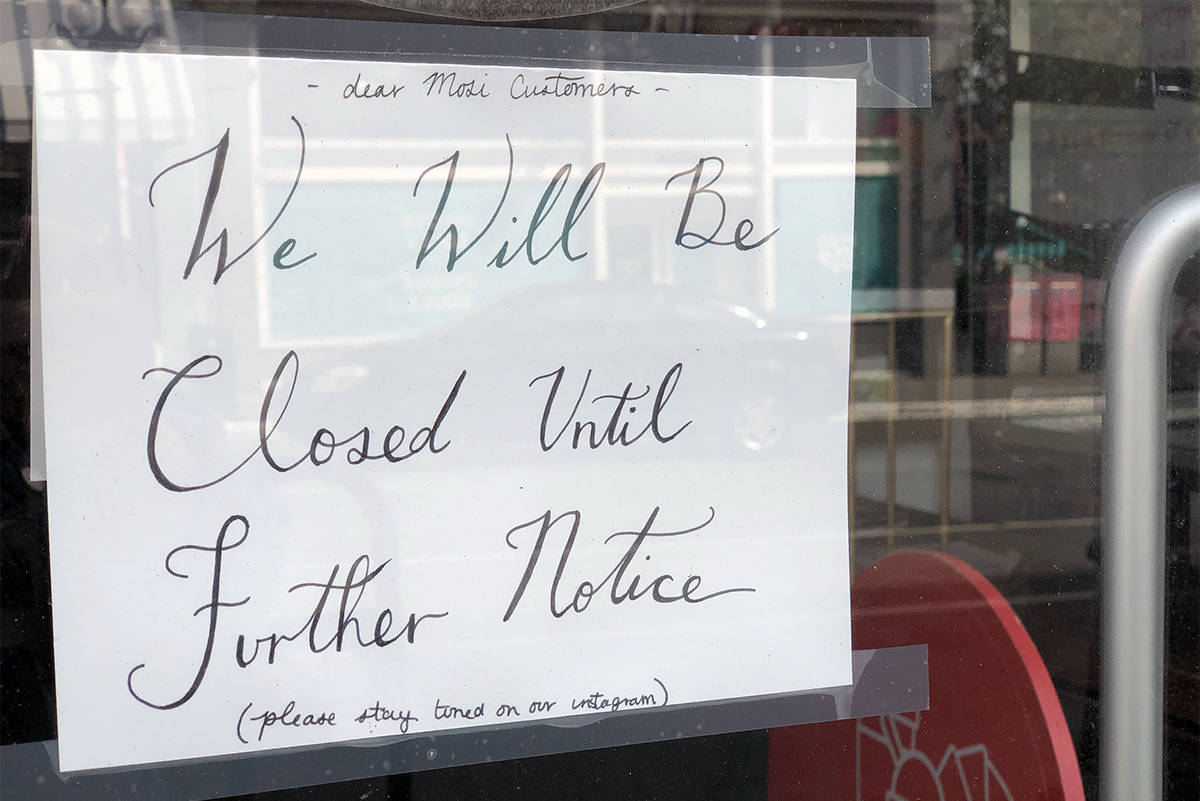 - dear Mosi Customers -
We Will Be
Closed Until
Further Notice
(please stay tuned on our instagram)